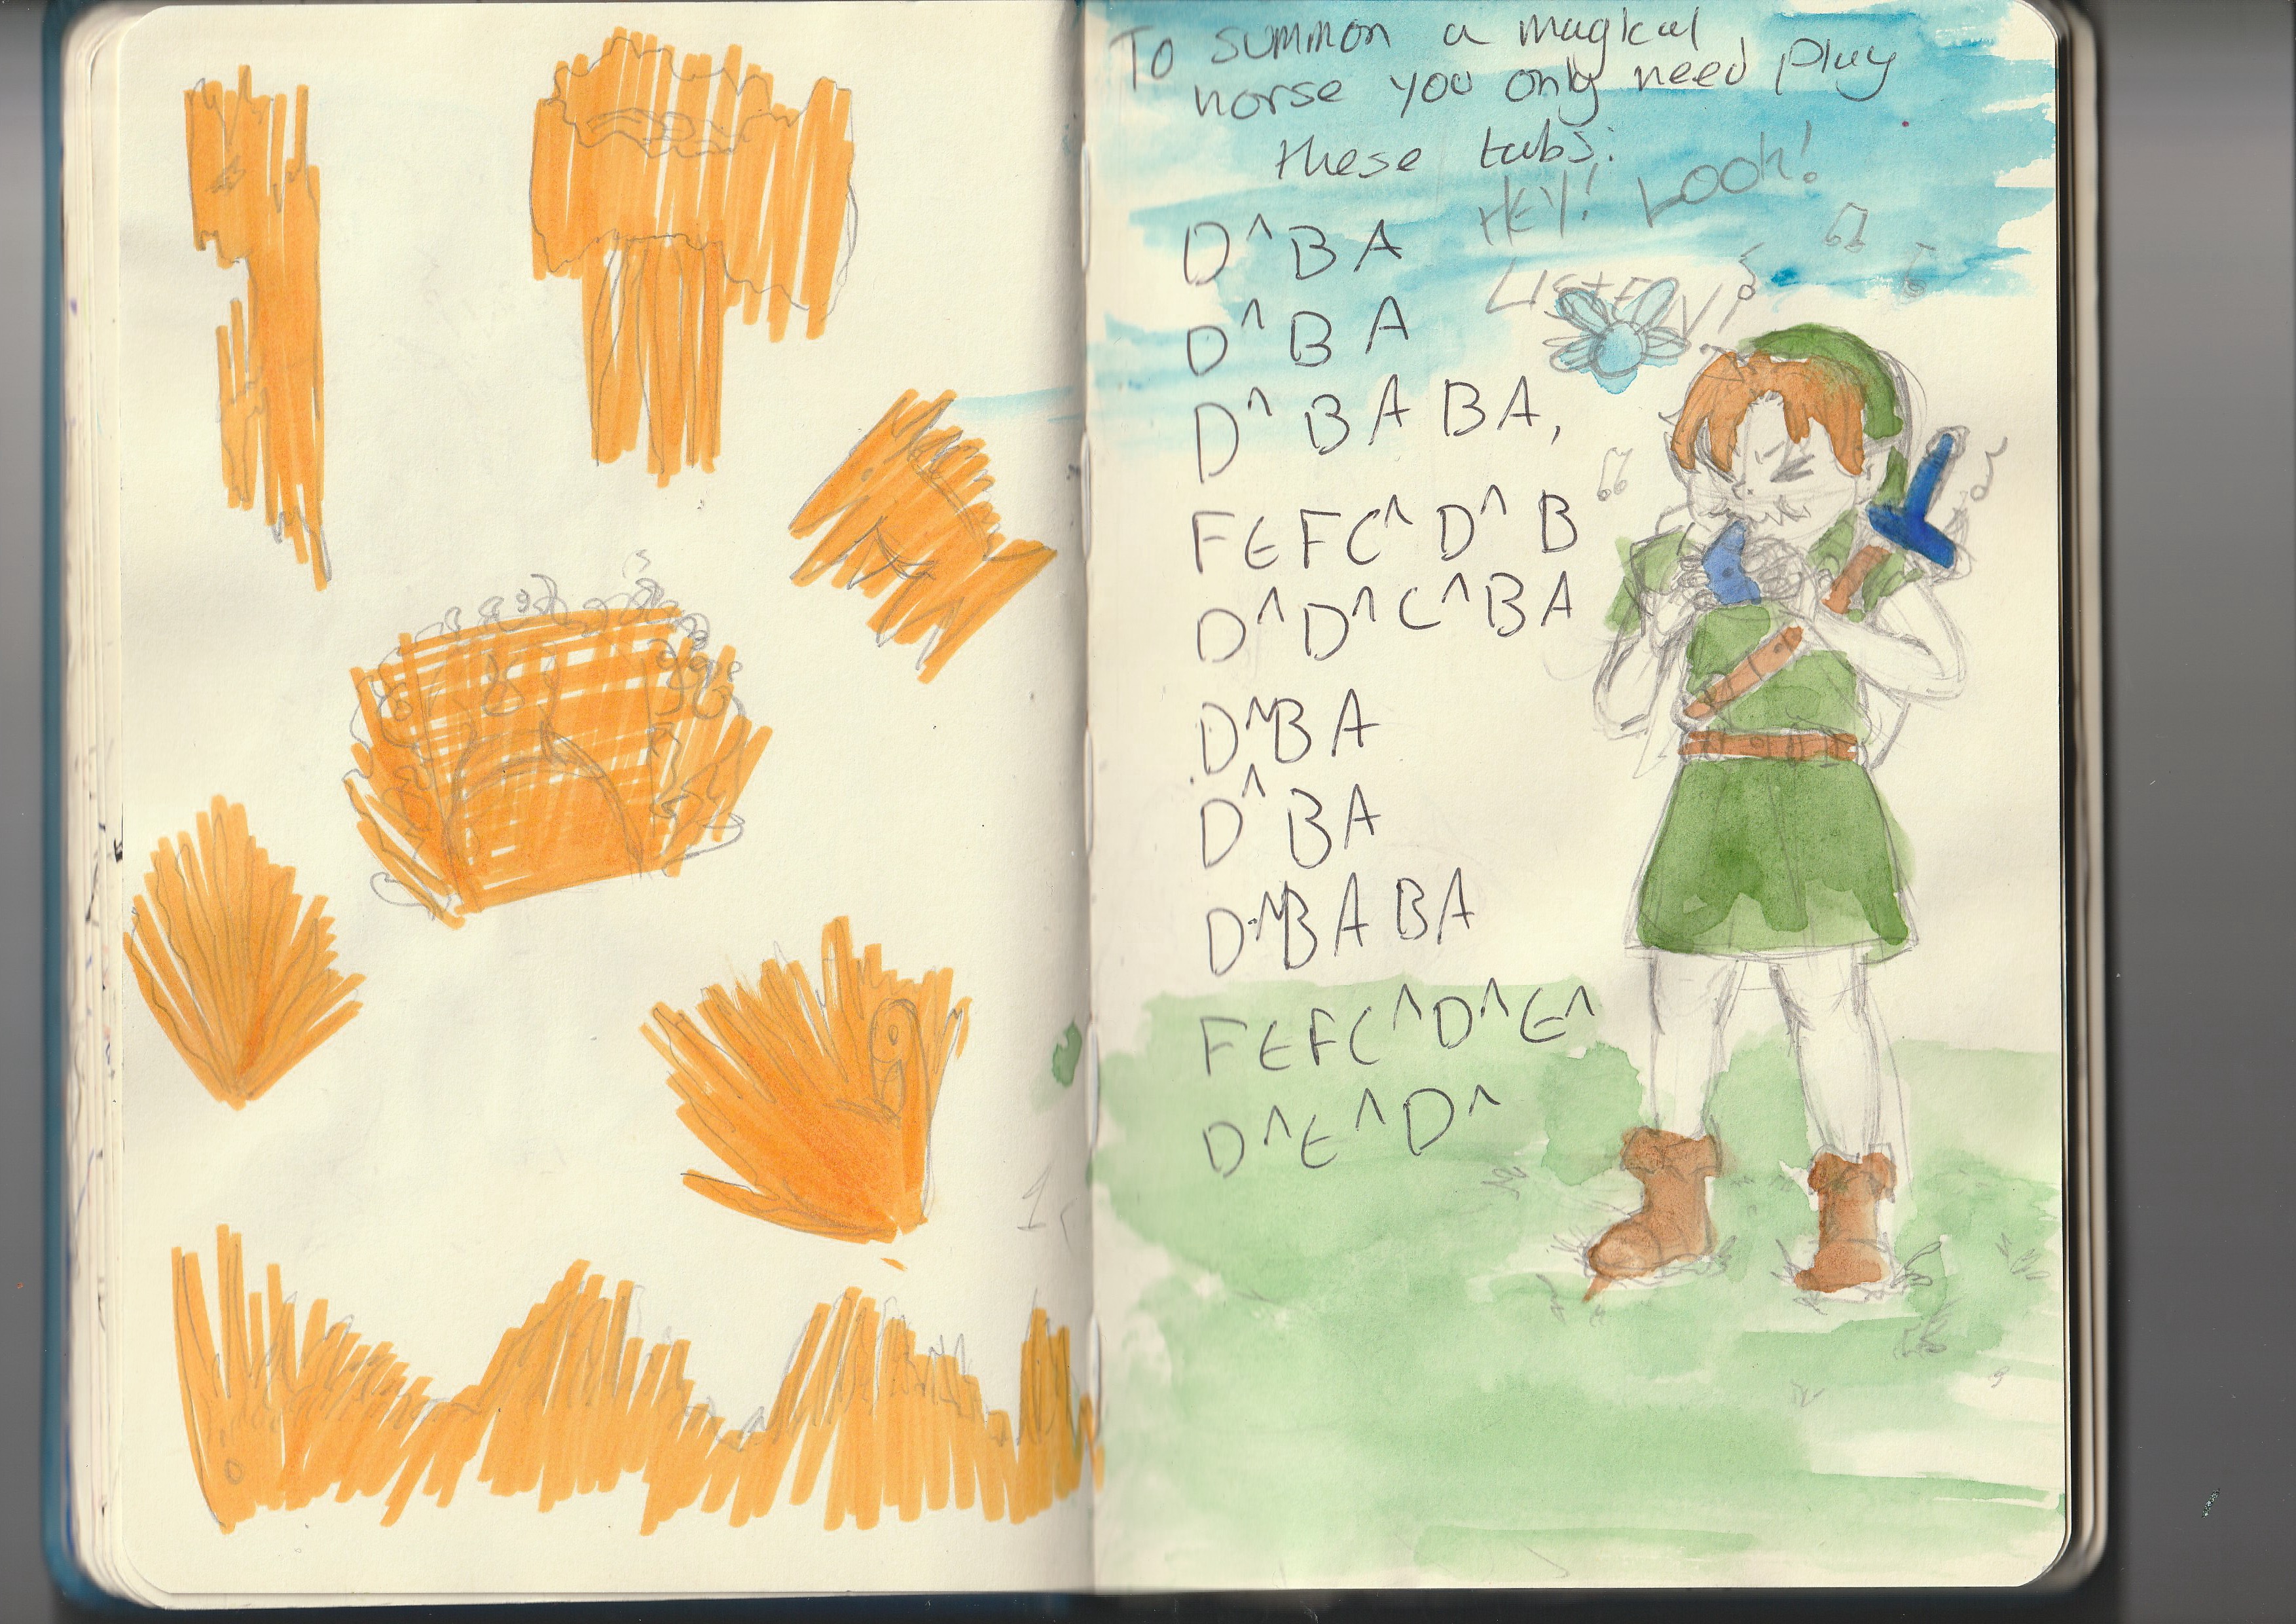 To summon a magical
horse you only need play
these tabs:
HEY! LOOK!
LISTEN!
D^ B A
D^ B A
D^ B A B A,
F E F C^ D^ B
D^ D^ C^ B A
D^ B A
D^ B A
D^ B A B A
F E F C^ D^ E^
D^ E^ D^